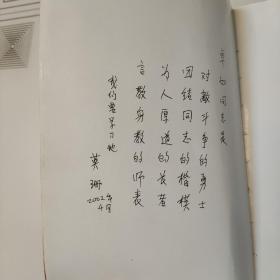 卓力同志是
对敌斗争的勇士
团结同志的楷模
为人厚道的长者
言教身教的师表
我们要学习他
莫珊
2002年
4月